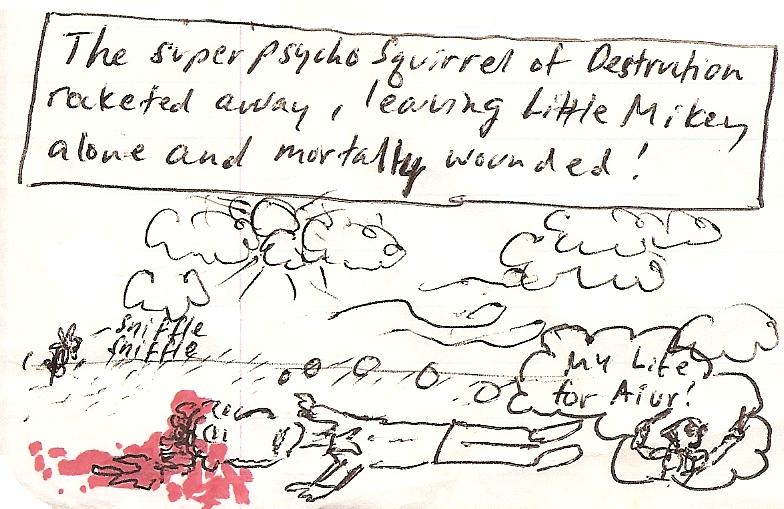 The super psycho Squirrel of Destrution
rocketed away, leaving Little Mikey
alone and mortally wounded!
sniffle
sniffle
My Life
for Aiur!